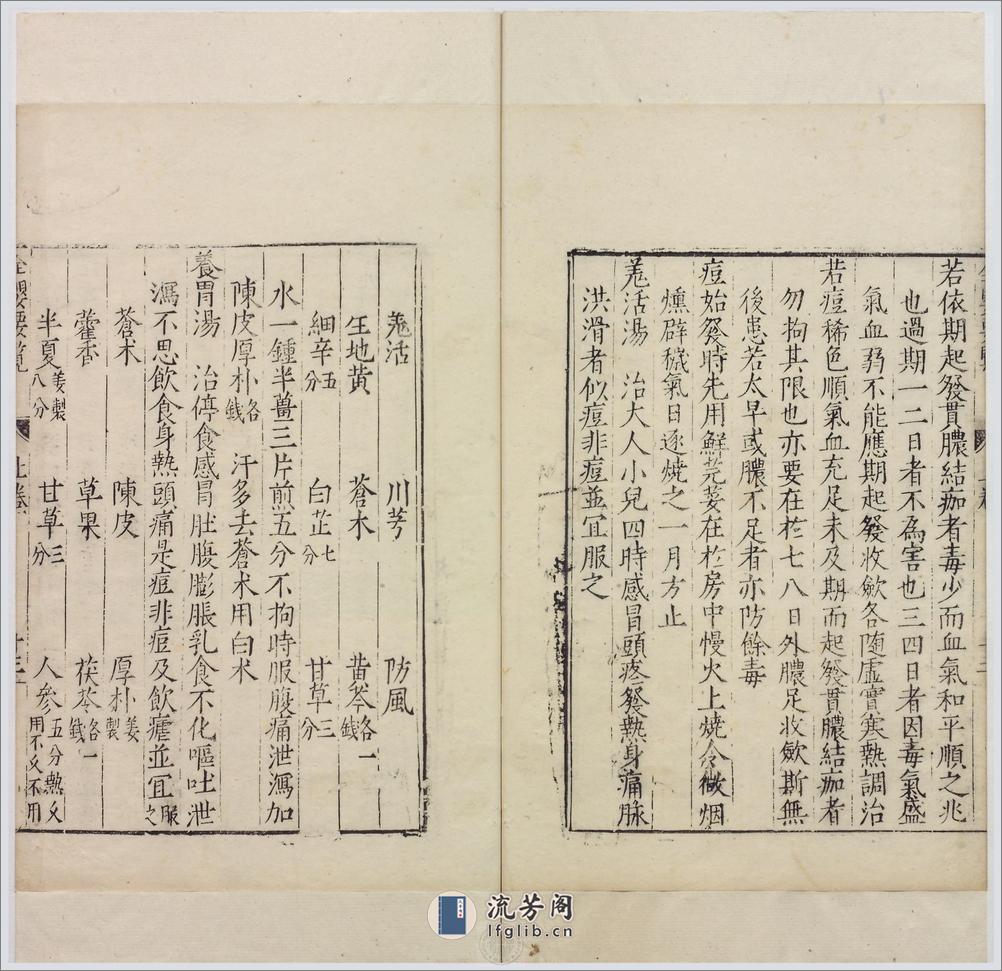 若依期起發貫膿結痂者毒少而血氣和平順之兆
也過期一二日者不為害也三四日者因毒氣盛
氣血弱不能應期起發收斂各隨虛實寒熱調治
若痘稀色順氣血充足未及期而起發貫膿結痂者
勿拘其限也亦要在於七八日外膿足收斂斯無
後患若太早或膿不足者亦防餘毒
痘始發時先用鮮芫荽在於房中慢火上燒令微烟
燻辟穢氣日逐燒之一月方止
羗活湯　治大人小兒四時感冒頭疼發熱身痛脉
洪滑者似痘非痘並宜服之
羗活　川芎　防風
生地黃　蒼朮　黃芩各一錢
細辛五分　白芷七分　甘草三分
水一鍾半薑三片煎五分不拘時服腹痛泄瀉加
陳皮厚朴各錢　汗多去蒼朮用白朮
養胃湯　治停食感冒肚腹膨脹乳食不化嘔吐泄
瀉不思飲食身熱頭痛是痘非痘及飲瘧並宜服之
蒼朮　陳皮　厚朴姜製
藿香　草果　茯苓各一錢
半夏姜製八分　甘草三分　人參五分熱乂用不乂不用
全嬰要覽　上卷　十三
流芳阁
lfglib.cn